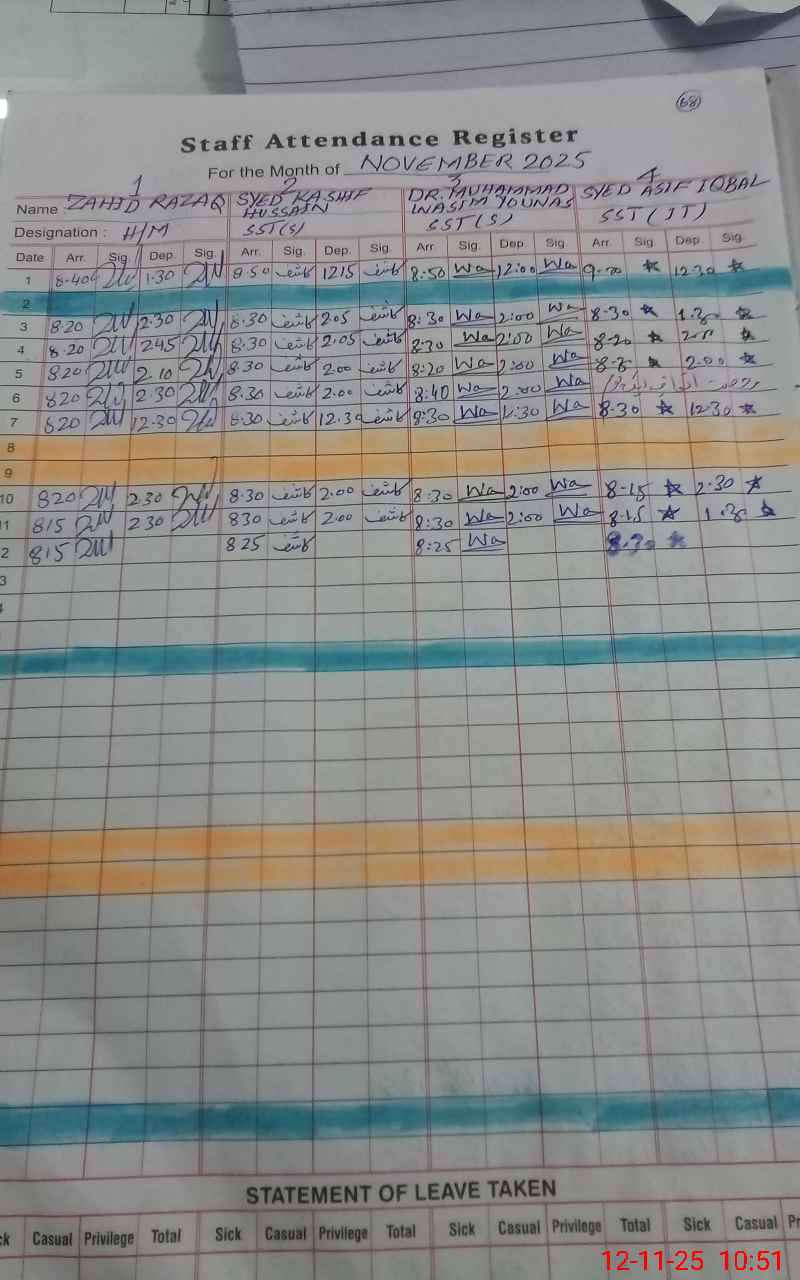 68
Staff Attendance Register
For the Month of NOVEMBER 2025
1 2 3 4
Name : ZAHID RAZAQ SYED KASHIF HUSSAIN DR. MUHAMMAD WASIM YOUNAS SYED ASIF IQBAL
Designation : H/M SST(S) SST(S) SST(IT)
Date Arr. Sig. Dep. Sig. Arr. Sig. Dep. Sig. Arr. Sig. Dep. Sig. Arr. Sig. Dep. Sig.
1 8.40 1.30 8.50 کاشف 1215 کاشف 8:50 Wa 12:00 Wa 12.30
2
3 8.20 2.30 8.30 کاشف 2.05 کاشف 8:30 Wa 2:00 Wa 8.30 1.30
4 8.20 2.45 8.30 کاشف 2.05 کاشف 8:30 Wa 2:00 Wa 8.20
5 820 2.10 8.30 کاشف 2.00 کاشف 8:20 Wa 2:00 Wa 2.00
6 820 2.30 8.30 کاشف 2.00 کاشف 8:40 Wa 2:00 Wa
7 820 12.30 8.30 کاشف 12.30 کاشف 8:30 Wa 12:30 Wa 8.30 12.30
8
9
10 820 230 8.30 کاشف 2.00 کاشف 8:30 Wa 2:00 Wa 8.15 2.30
11 815 230 830 کاشف 2.00 کاشف 8:30 Wa 2:00 Wa 8.15 1.30
2 815 825 کاشف 8:25 Wa 8.30
3
STATEMENT OF LEAVE TAKEN
ck Casual Privilege Total Sick Casual Privilege Total Sick Casual Privilege Total Sick Casual Pr
12-11-25 10:51